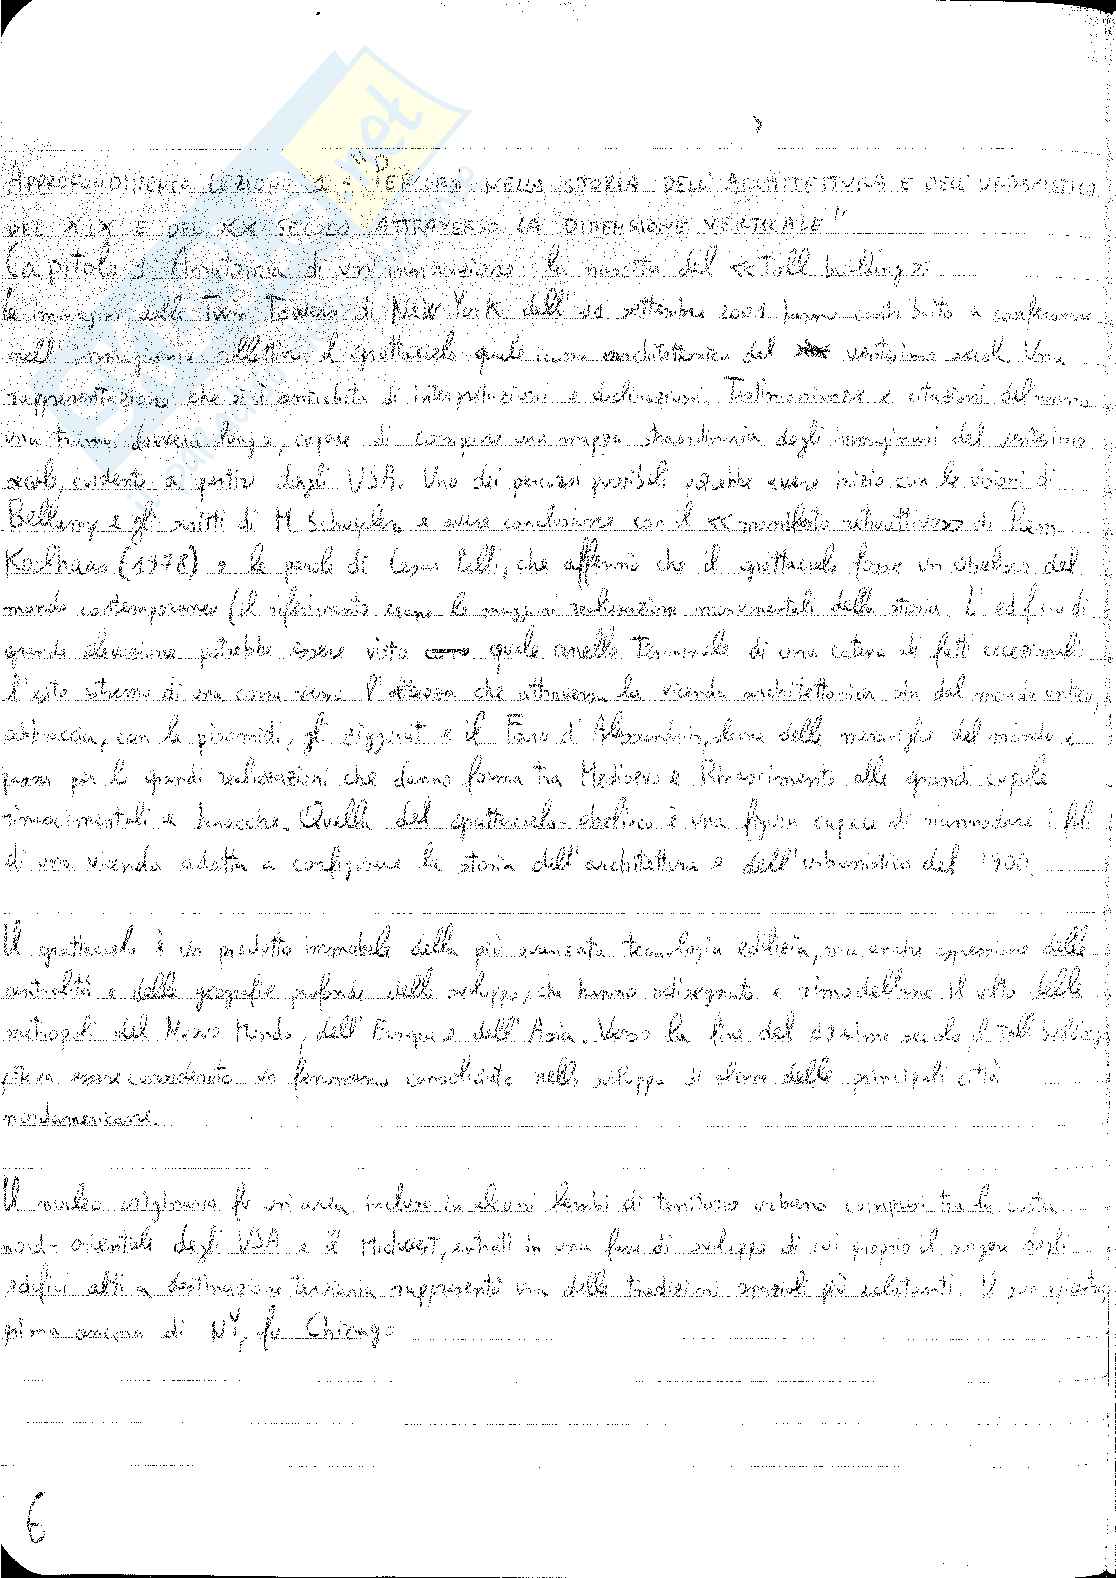 APPROFONDIMENTO LEZIONE 1 - "PERCORSI NELLA STORIA DELL'ARCHITETTURA E DELL'URBANISTICA
DEL XIX E DEL XX SECOLO ATTRAVERSO LA "DIMENSIONE VERTICALE"
Capitolo 1 Anatomia di un'innovazione: la nascita del <<Tall building>>
le immagini delle Twin Towers di New York dell'11 settembre 2001 hanno contribuito a confermare
nell' immaginario collettivo il grattacielo quale icona architettonica del ventesimo secolo. Una
rappresentazione che si è arricchita di interpretazioni e declinazioni. Testimonianze e citazioni
una trama capace di comporre una mappa straordinaria degli immaginari del ventesimo
secolo, evidente a partire dagli USA. Uno dei percorsi possibili potrebbe avere inizio con le visioni di
Bellamy e gli scritti di M Schuyler e avere conclusione con il << manifesto retroattivo>> di Rem
Koolhaas (1978) e le parole di Cesar Pelli, che affermò che il grattacielo fosse un obelisco del
mondo contemporaneo (il riferimento erano le maggiori realizzazioni monumentali della storia. L'edificio di
grande elevazione potrebbe essere visto quale anello terminale di una catena di fatti eccezionali
l'esito estremo di una corsa verso l'altezza che attraversa la vicenda architettonica sin dal mondo antico,
abbraccia, con le piramidi, gli ziggurat e il Faro d'Alessandria, alcune delle meraviglie del mondo e
passa per le grandi realizzazioni che danno forma tra Medioevo e Rinascimento alle grandi cupole
rinascimentali e barocche. Quella del grattacielo-obelisco è una figura capace di riannodare i fili
di una vicenda adatta a configurare la storia dell'architettura e dell'urbanistica del 1900.
Il grattacielo è un prodotto immobile della più avanzata tecnologia edilizia, ma anche espressione delle
centralità e delle geografie profonde dello sviluppo, che hanno ridisegnato e rimodellano il volto delle
metropoli del Nuovo Mondo, dell' Europa e dell' Asia. Verso la fine del secolo, il Tall building
poteva essere considerato un fenomeno consolidato nello sviluppo di alcune delle principali città
nordamericane.
Il nucleo originario fu un'area inclusa in alcuni lembi di territorio urbano compresi tra la costa
nord-orientale degli USA e il Midwest, entrati in una fase di sviluppo di cui proprio il sorgere degli
edifici alti a destinazione terziaria rappresentò una delle traduzioni più eclatanti. Il suo epicentro,
prima ancora di NY, fu Chicago
6